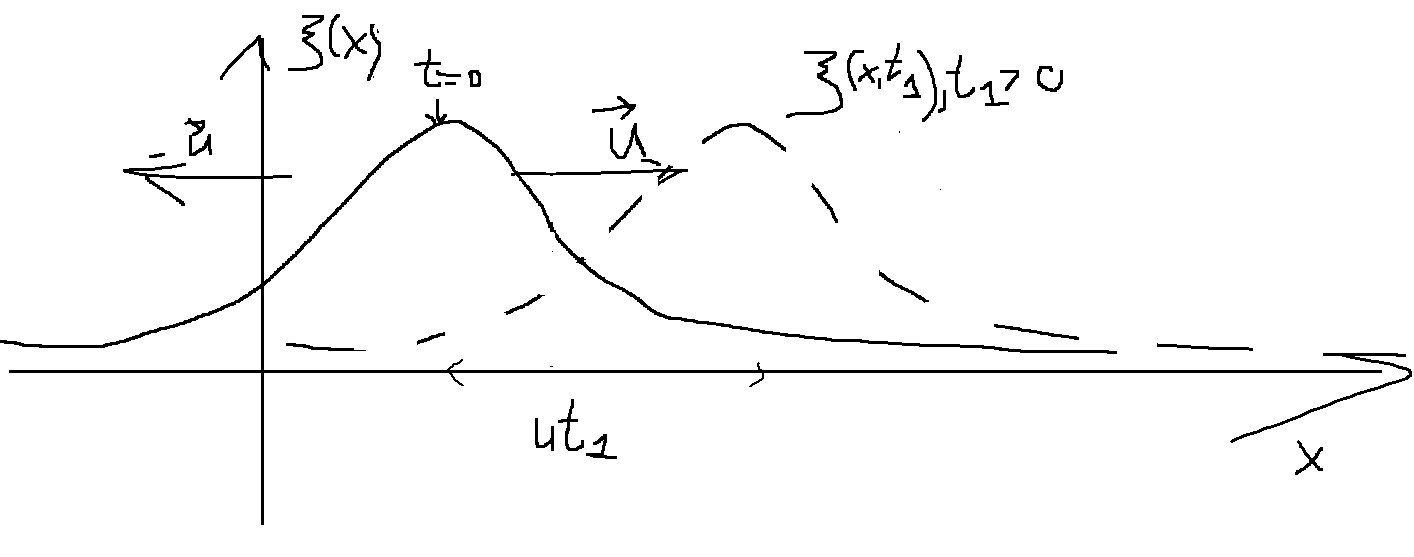 ξ(x)
t=0
ξ(x,t₁), t₁>0
-u⃗
u⃗
ut₁
x